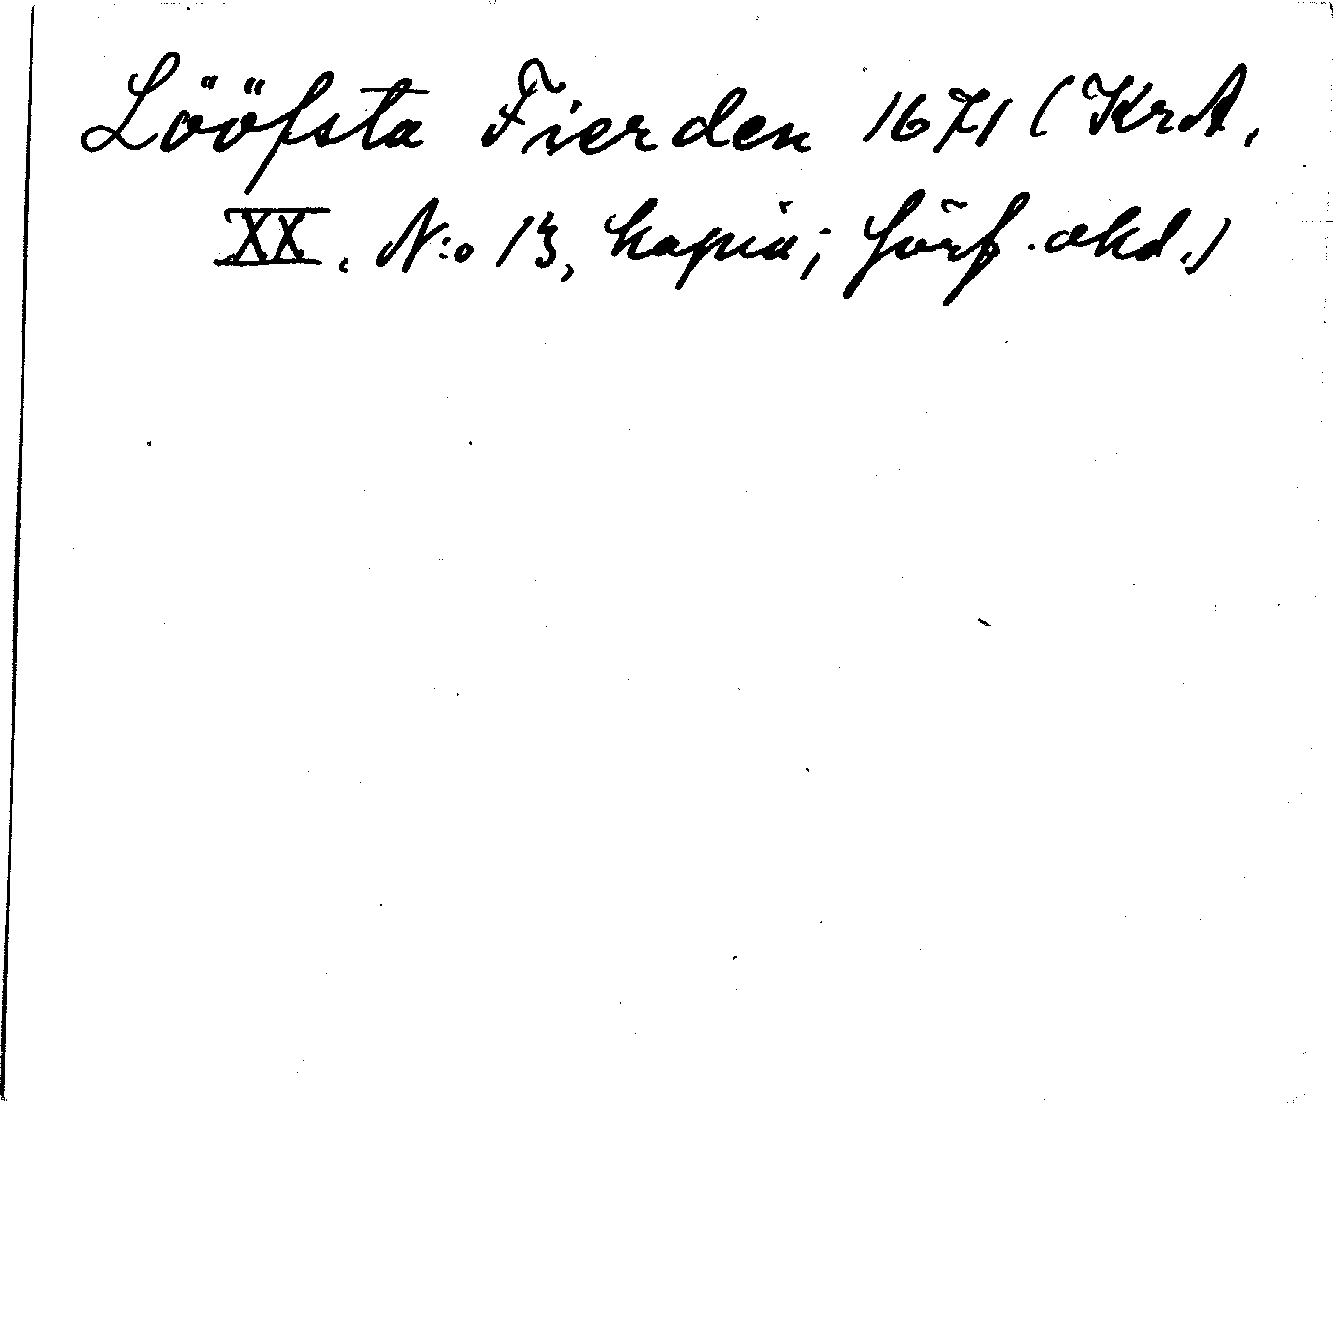 Lööfsta Fierden 1671 (KrA,
XX. N:o 13, kopia; förf. okd.)